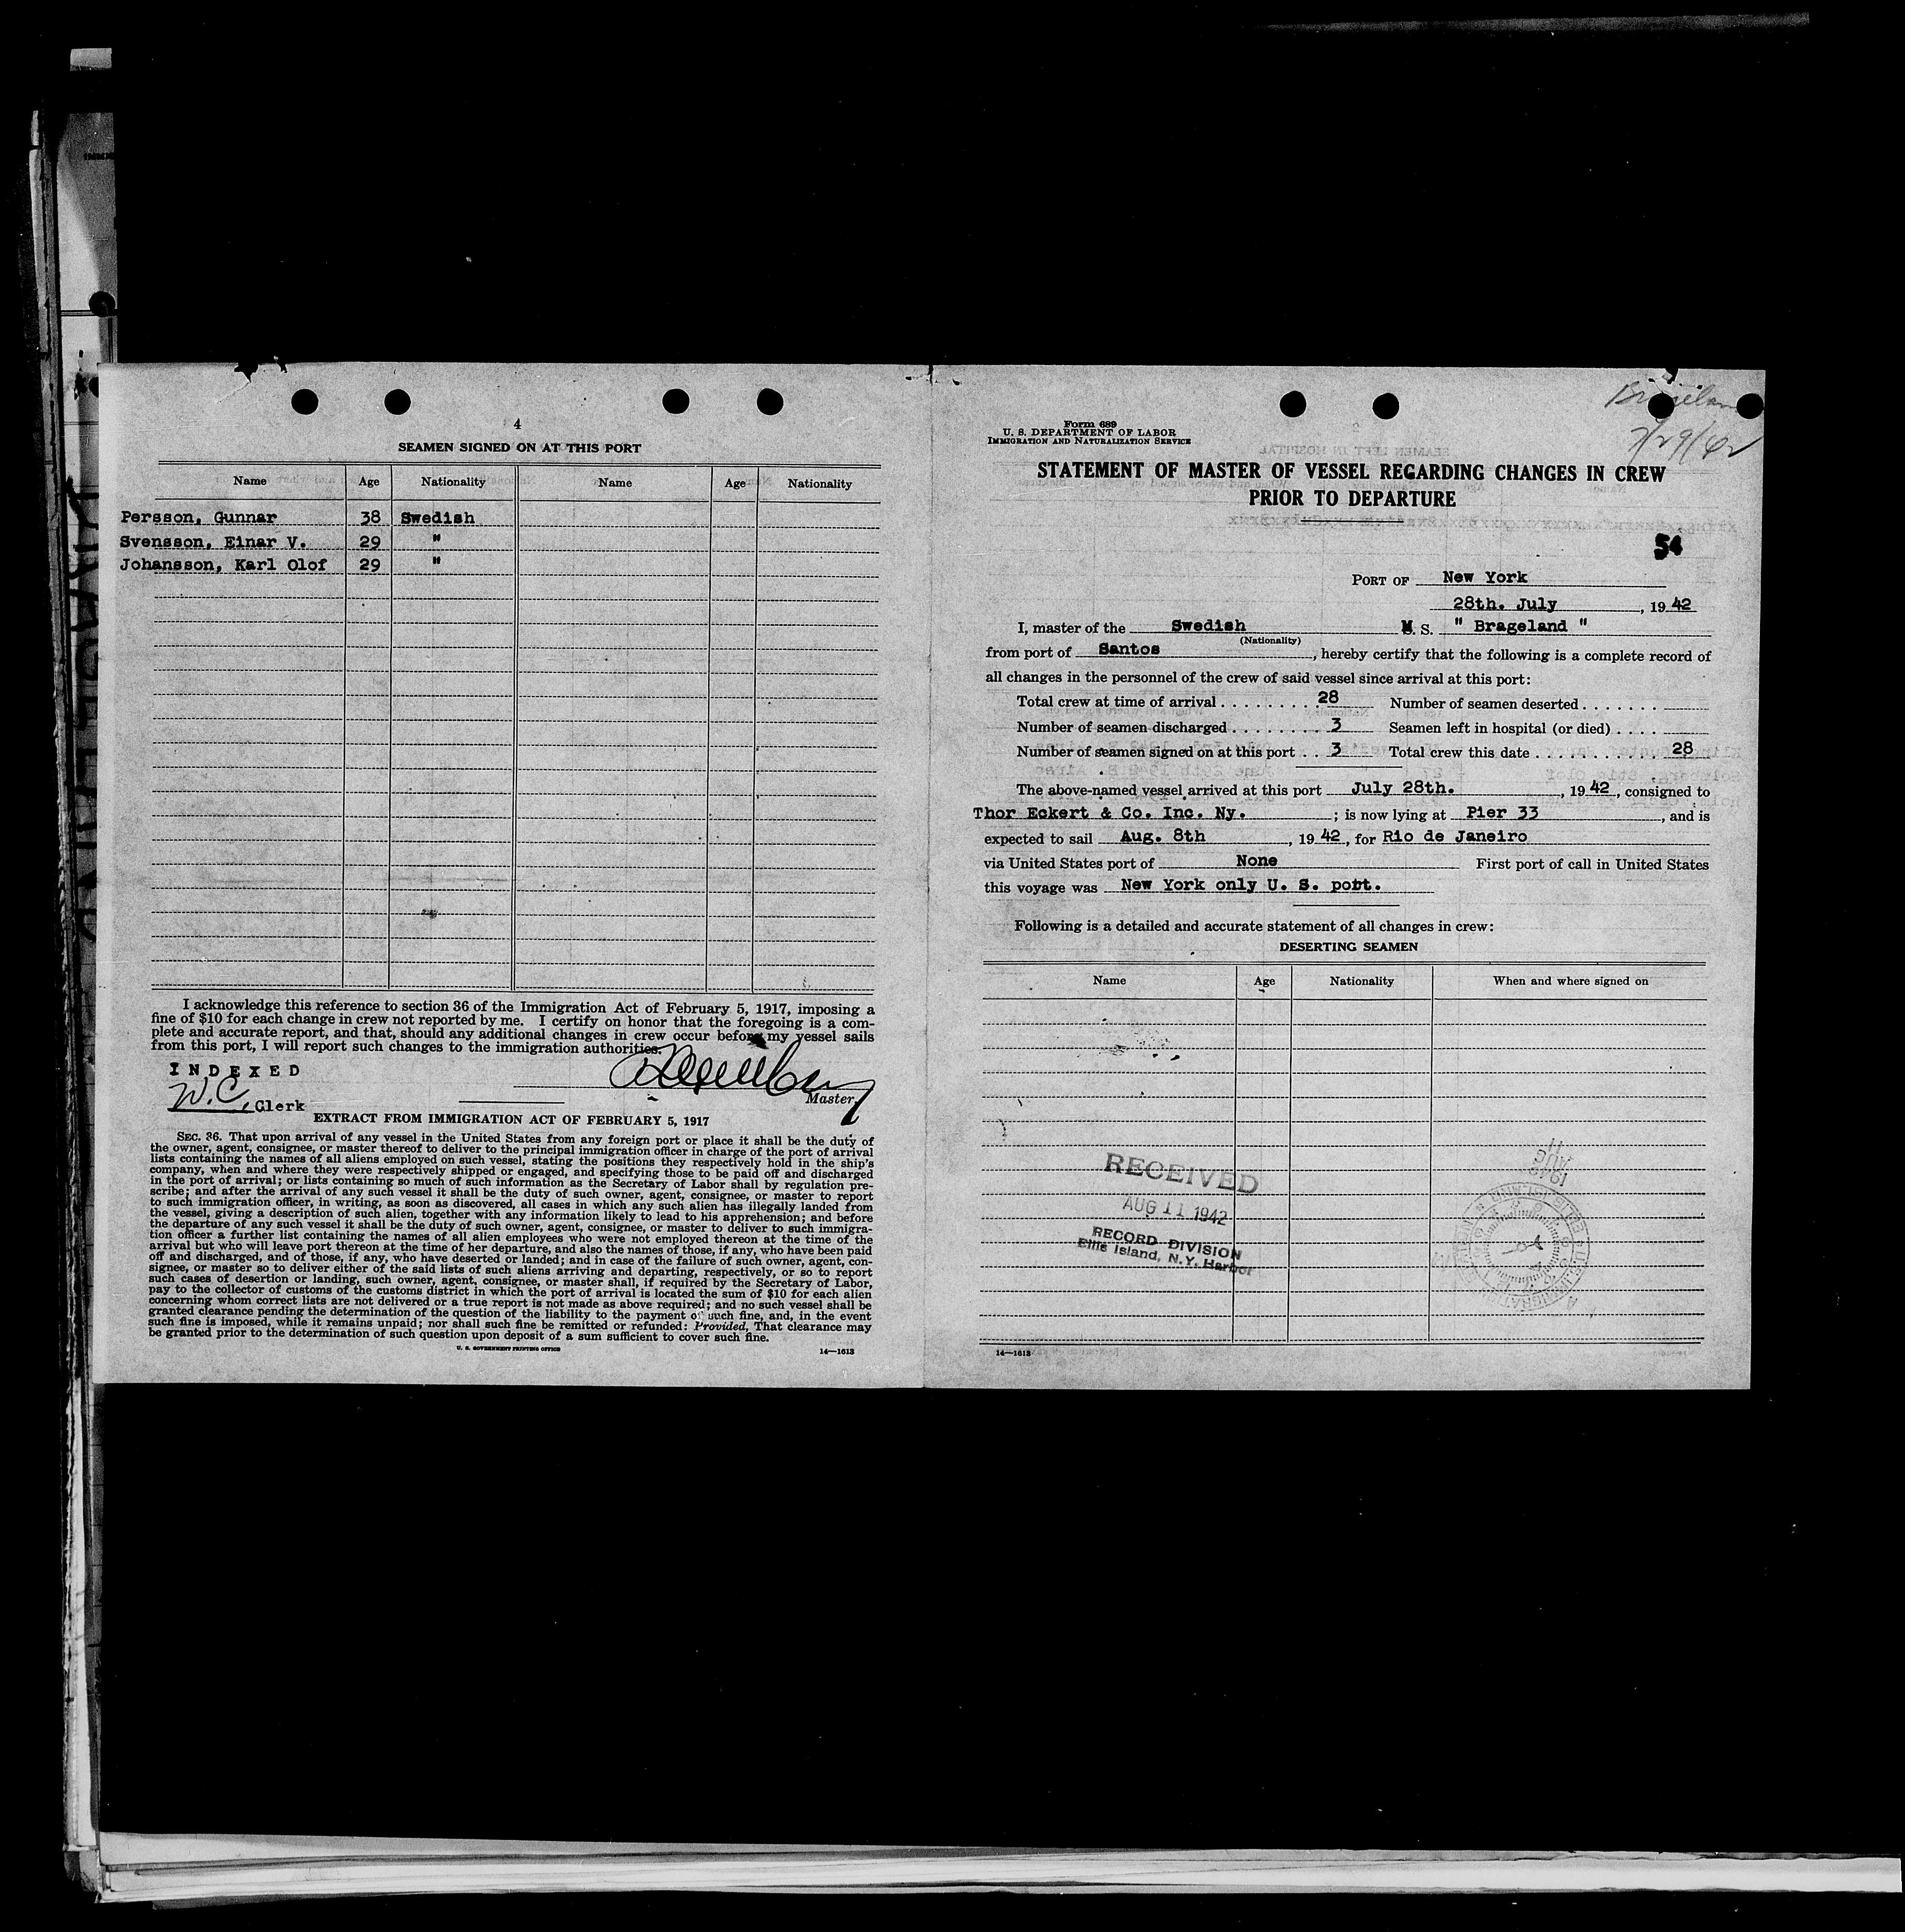 4
SEAMEN SIGNED ON AT THIS PORT
Name Age Nationality Name Age Nationality
Persson, Gunnar 38 Swedish
Svensson, Einar V. 29 "
Johansson, Karl Olof 29 "
I acknowledge this reference to section 36 of the Immigration Act of February 5, 1917, imposing a
fine of $10 for each change in crew not reported by me. I certify on honor that the foregoing is a com-
plete and accurate report, and that, should any additional changes in crew occur before my vessel sails
from this port, I will report such changes to the immigration authorities.
INDEXED
W.C. Clerk
Master.
EXTRACT FROM IMMIGRATION ACT OF FEBRUARY 5, 1917
SEC. 36. That upon arrival of any vessel in the United States from any foreign port or place it shall be the duty of
the owner, agent, consignee, or master thereof to deliver to the principal immigration officer in charge of the port of arrival
lists containing the names of all aliens employed on such vessel, stating the positions they respectively hold in the ship's
company, when and where they were respectively shipped or engaged, and specifying those to be paid off and discharged
in the port of arrival; or lists containing so much of such information as the Secretary of Labor shall by regulation pre-
scribe; and after the arrival of any such vessel it shall be the duty of such owner, agent, consignee, or master to report
to such immigration officer, in writing, as soon as discovered, all cases in which any such alien has illegally landed from
the vessel, giving a description of such alien, together with any information likely to lead to his apprehension; and before
the departure of any such vessel it shall be the duty of such owner, agent, consignee, or master to deliver to such immigra-
tion officer a further list containing the names of all alien employees who were not employed thereon at the time of the
arrival but who will leave port thereon at the time of her departure, and also the names of those, if any, who have been paid
off and discharged, and of those, if any, who have deserted or landed; and in case of the failure of such owner, agent, con-
signee, or master so to deliver either of the said lists of such aliens arriving and departing, respectively, or so to report
such cases of desertion or landing, such owner, agent, consignee, or master shall, if required by the Secretary of Labor,
pay to the collector of customs of the customs district in which the port of arrival is located the sum of $10 for each alien
concerning whom correct lists are not delivered or a true report is not made as above required; and no such vessel shall be
granted clearance pending the determination of the question of the liability to the payment of such fine, and, in the event
such fine is imposed, while it remains unpaid; nor shall such fine be remitted or refunded: Provided, That clearance may
be granted prior to the determination of such question upon deposit of a sum sufficient to cover such fine.
U. S. GOVERNMENT PRINTING OFFICE 14—1613
7/29/42
Form 689
U. S. DEPARTMENT OF LABOR
IMMIGRATION AND NATURALIZATION SERVICE
STATEMENT OF MASTER OF VESSEL REGARDING CHANGES IN CREW
PRIOR TO DEPARTURE
54
PORT OF New York
28th. July, 1942
I, master of the Swedish M. S. " Brageland "
(Nationality)
from port of Santos, hereby certify that the following is a complete record of
all changes in the personnel of the crew of said vessel since arrival at this port:
Total crew at time of arrival . . . . . . . . . 28 Number of seamen deserted . . . . . . .
Number of seamen discharged . . . . . . . . 3 Seamen left in hospital (or died) . . . .
Number of seamen signed on at this port . . 3 Total crew this date . . . . . . . . . . . 28
The above-named vessel arrived at this port July 28th., 1942, consigned to
Thor Eckert & Co. Inc. Ny. ; is now lying at Pier 33, and is
expected to sail Aug. 8th, 1942, for Rio de Janeiro
via United States port of None First port of call in United States
this voyage was New York only U. S. port.
Following is a detailed and accurate statement of all changes in crew:
DESERTING SEAMEN
Name Age Nationality When and where signed on
RECEIVED
AUG 11 1942
RECORD DIVISION
Ellis Island, N.Y. Harbor
14—1613